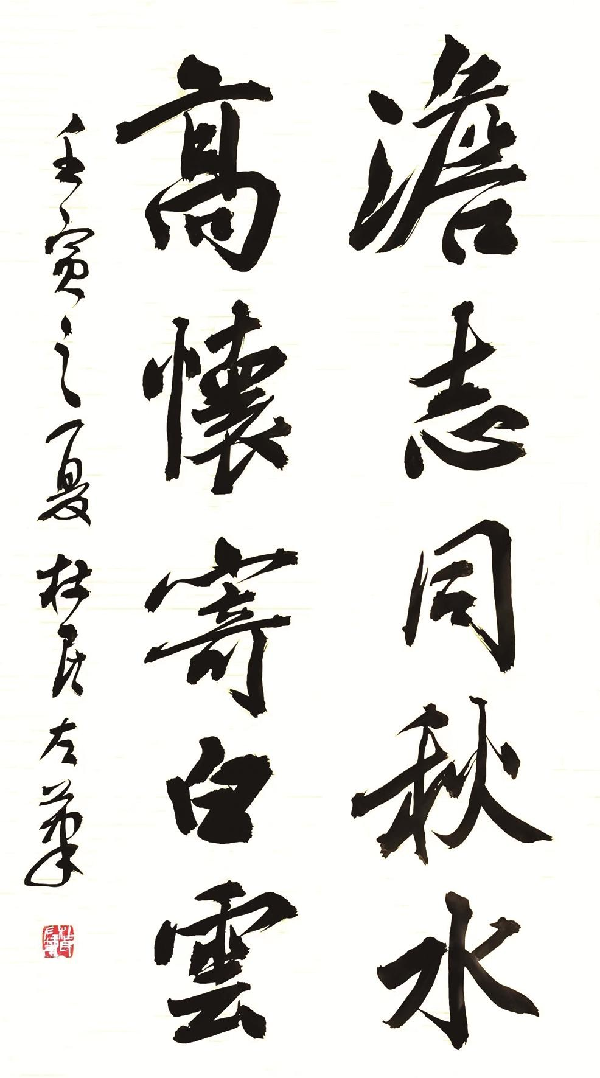 澹志同秋水
高懷寄白雲
壬寅之夏 林居左筆